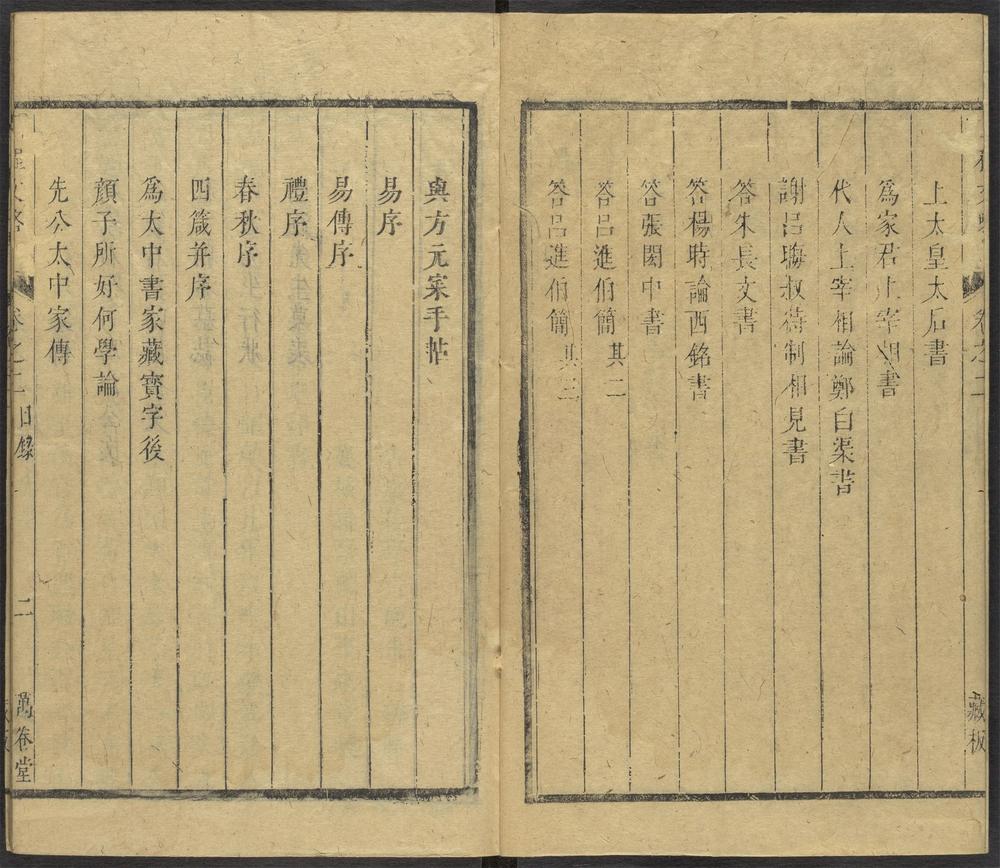 上太皇太后書
爲家君上宰相書
代人上宰相論鄭白渠書
謝呂晦叔待制相見書
答朱長文書
答楊時論西銘書
答張閎中書
答呂進伯簡 其二
答呂進伯簡 其三
藏板
與方元寀手帖
易序
易傳序
禮序
春秋序
四箴并序
爲太中書家藏寳字後
顏子所好何學論
先公太中家傳
卷之二 目錄 二 萬卷堂